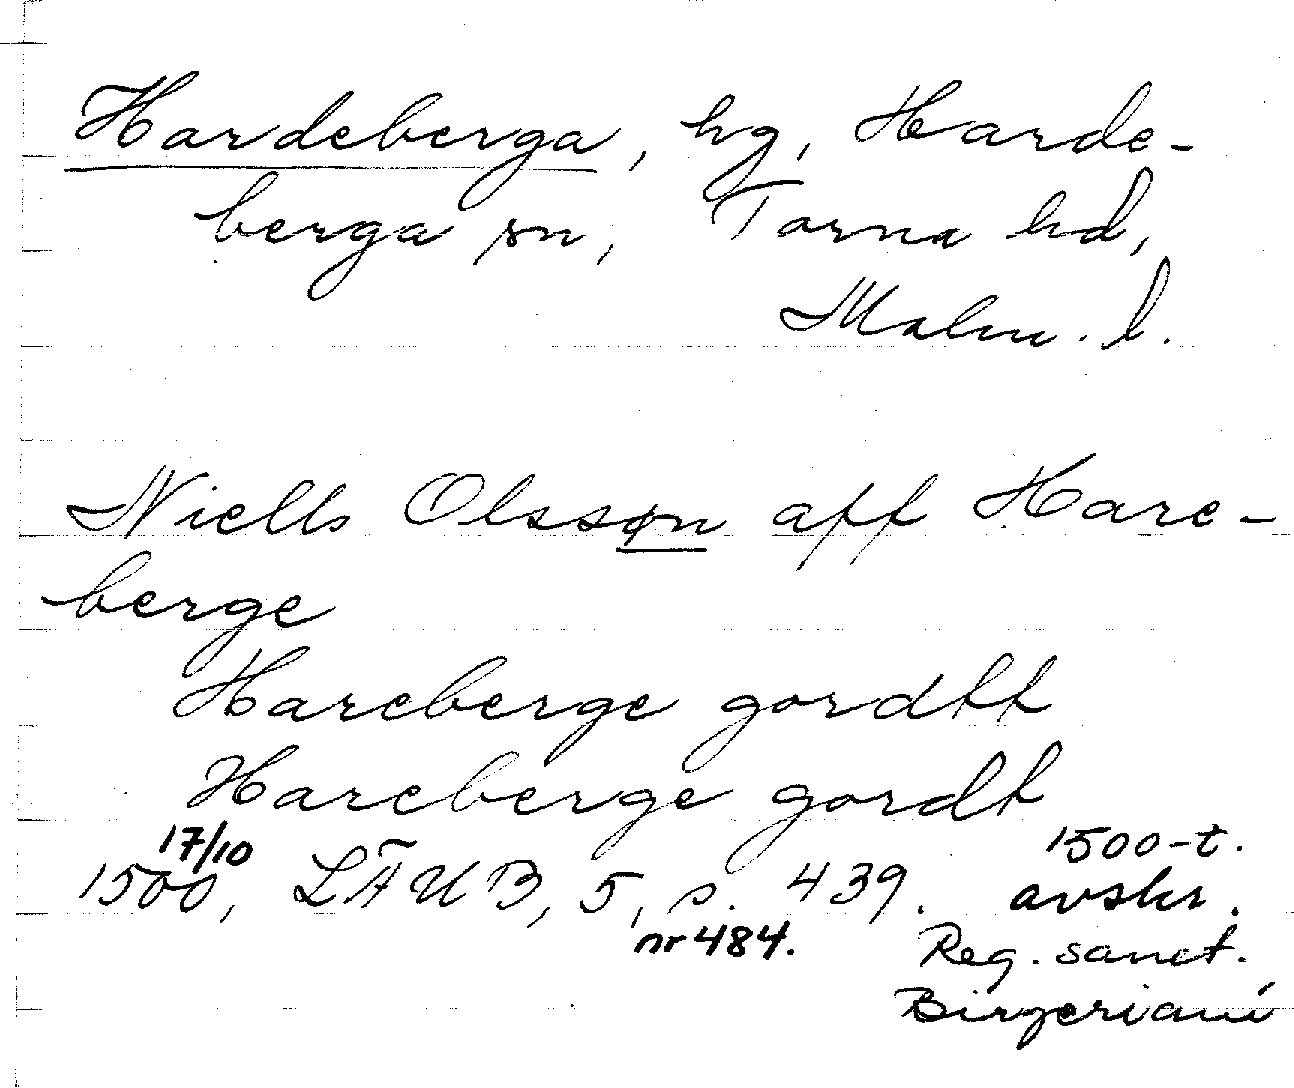 Hardeberga, hg, Harde-
berga sn, Torna hd,
Malm. l.
Niells Olssøn aff Hare-
berge
Hareberge gordtt
Hareberge gordt
17/10 1500-t.
1500, LÄUB, 5, s. 439. avskr.
nr 484. Reg. sanct.
Birgeriani